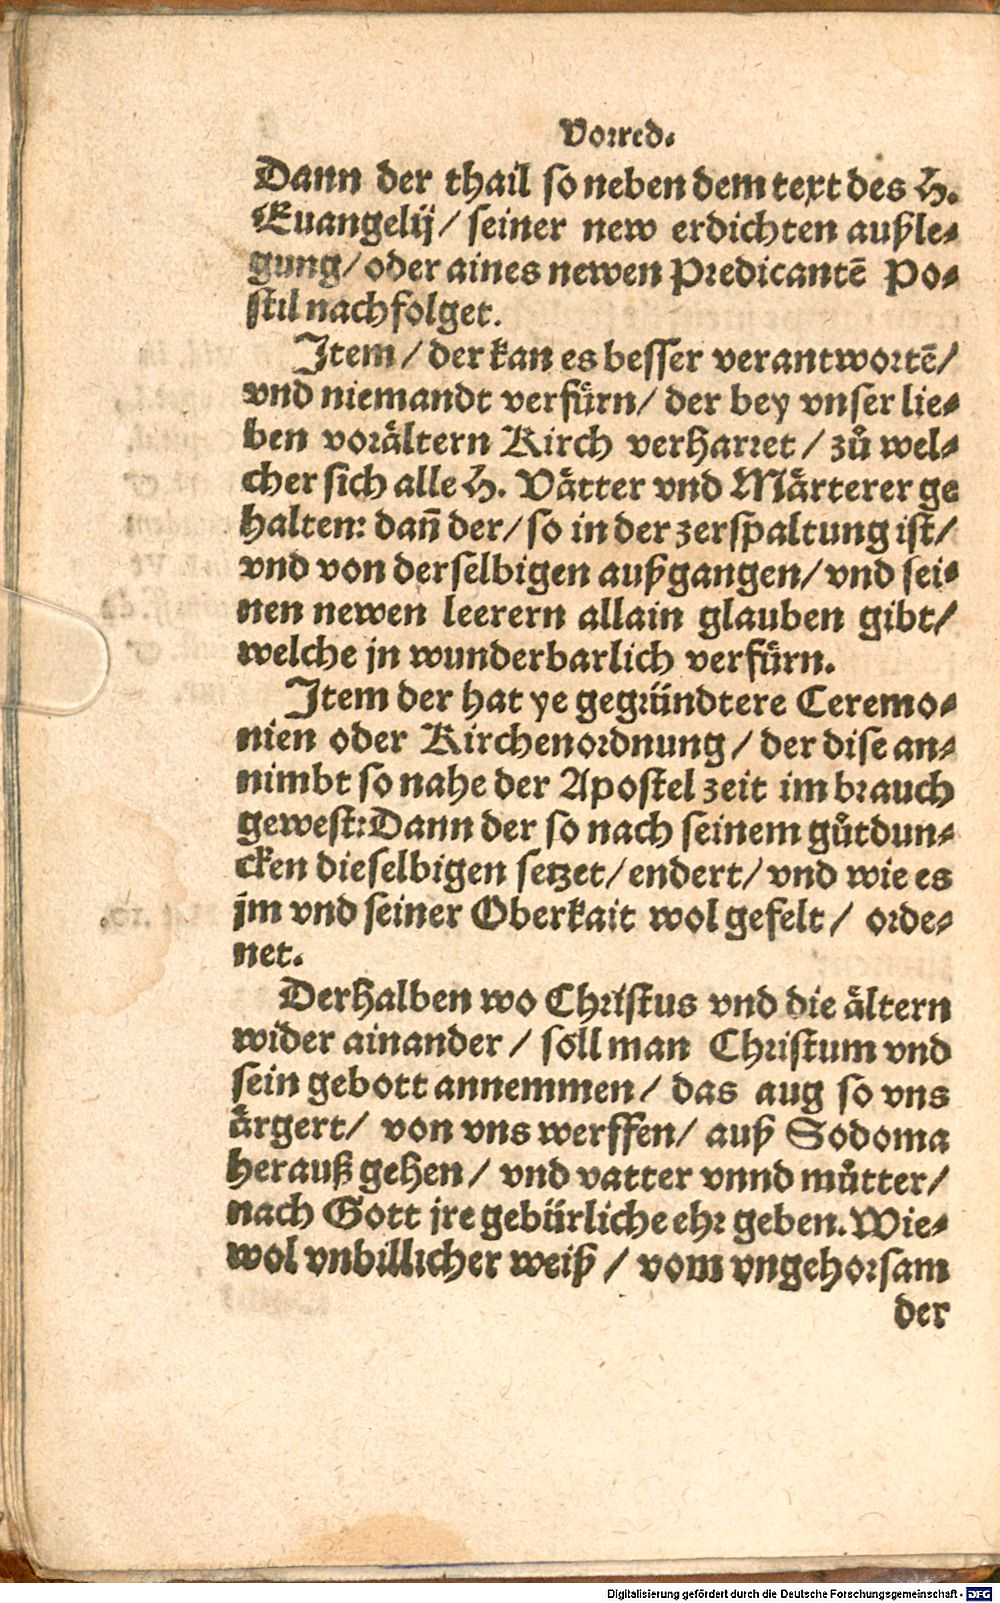 Vorred.
Dann der thail so neben dem text des H.
Euangelij/ seiner new erdichten außle-
gung/ oder aines newen Predicantē Po-
stil nachfolget.
Item/ der kan es besser verantwortē/
vnd niemandt verfuͤrn/ der bey vnser lie-
ben voraͤltern Kirch verharret/ zuͦ wel-
cher sich alle H. Vaͤtter vnd Maͤrterer ge
halten: dañ der/ so in der zerspaltung ist/
vnd von derselbigen außgangen/ vnd sei-
nen newen leerern allain glauben gibt/
welche jn wunderbarlich verfuͤrn.
Item der hat ye gegründtere Ceremo-
nien oder Kirchenordnung/ der dise an-
nimbt so nahe der Apostel zeit im brauch
gewest: Dann der so nach seinem guͦtdun-
cken dieselbigen setzet/ endert/ vnd wie es
jm vnd seiner Oberkait wol gefelt/ orde-
net.
Derhalben wo Christus vnd die aͤltern
wider ainander/ soll man Christum vnd
sein gebott annemmen/ das aug so vns
aͤrgert/ von vns werffen/ auß Sodoma
herauß gehen/ vnd vatter vnnd muͦtter/
nach Gott jre gebürliche ehr geben. Wie-
wol vnbillicher weiß/ vom vngehorsam
der
Digitalisierung gefördert durch die Deutsche Forschungsgemeinschaft - DFG